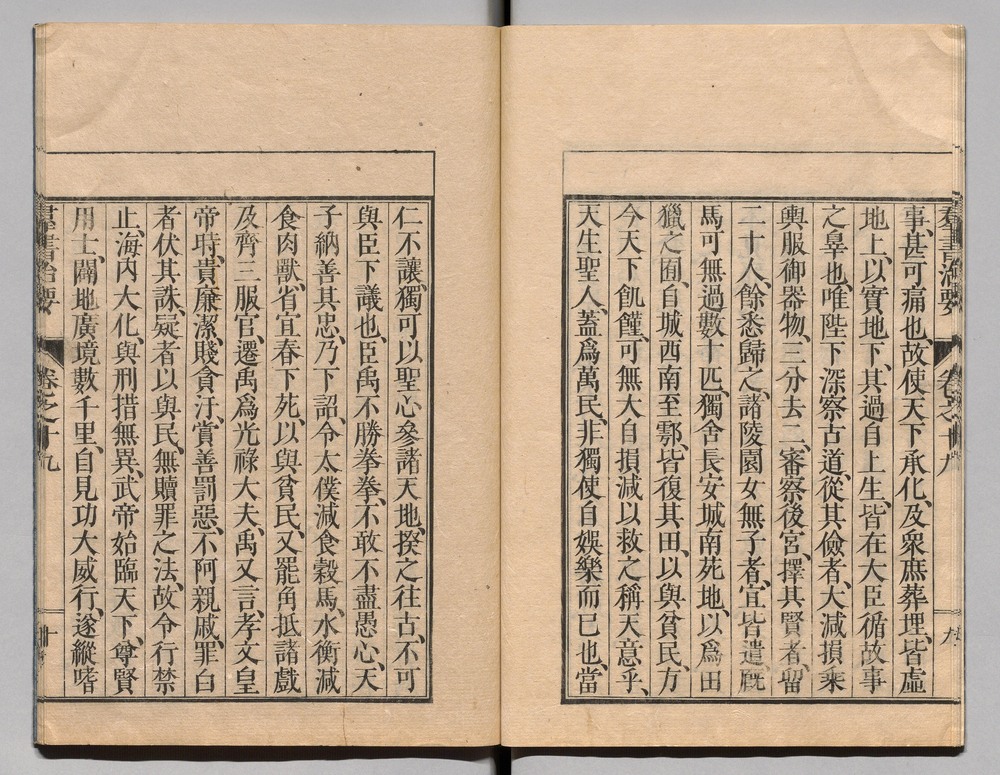 羣書治要 卷之十九 九
事、甚可痛也、故使天下承化、及衆庶葬埋、皆虛
地上、以實地下、其過自上生、皆在大臣循故事
之辠也、唯陛下深察古道、從其儉者、大減損乘
輿服御器物、三分去二、審察後宮、擇其賢者、留
二十人、餘悉歸之、諸陵園女無子者、宜皆遣、厩
馬可無過數十匹、獨舍長安城南苑地、以爲田
獵之囿、自城西南至鄠、皆復其田、以與貧民、方
今天下飢饉、可無大自損減以救之稱天意乎、
天生聖人、蓋爲萬民、非獨使自娛樂而已也、當
仁不讓、獨可以聖心參諸天地、揆之往古、不可
與臣下議也、臣禹不勝拳拳、不敢不盡愚心、天
子納善其忠、乃下詔、令太僕減食穀馬、水衡減
食肉獸、省宜春下苑、以與貧民、又罷角抵諸戲
及齊三服官、遷禹爲光祿大夫、禹又言、孝文皇
帝時、貴廉潔賤貪汙、賞善罰惡、不阿親戚、罪白
者伏其誅、疑者以與民、無贖罪之法、故令行禁
止、海內大化、與刑措無異、武帝始臨天下、尊賢
用士、闢地廣境數千里、自見功大威行、遂縱嗜
羣書治要 卷之十九 十